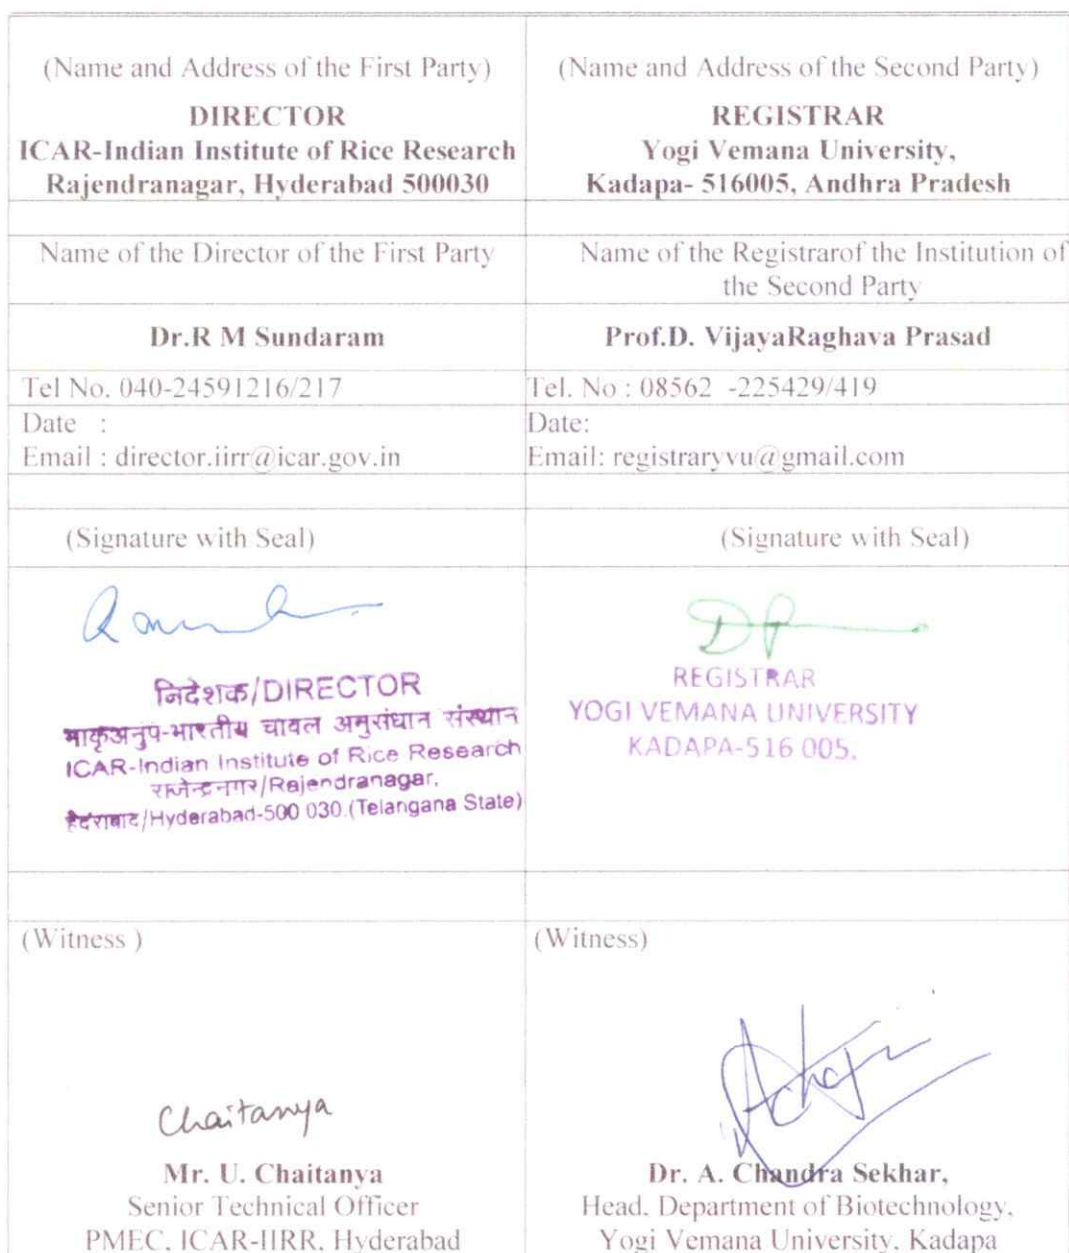 (Name and Address of the First Party)
DIRECTOR
ICAR-Indian Institute of Rice Research
Rajendranagar, Hyderabad 500030
(Name and Address of the Second Party)
REGISTRAR
Yogi Vemana University,
Kadapa- 516005, Andhra Pradesh
Name of the Director of the First Party
Name of the Registrarof the Institution of
the Second Party
Dr.R M Sundaram
Prof.D. VijayaRaghava Prasad
Tel No. 040-24591216/217
Tel. No : 08562 -225429/419
Date :
Email : director.iirr@icar.gov.in
Date:
Email: registraryvu@gmail.com
(Signature with Seal)
(Signature with Seal)
निदेशक/DIRECTOR
भाकृअनुप-भारतीय चावल अनुसंधान संस्थान
ICAR-Indian Institute of Rice Research
राजेन्द्रनगर/Rajendranagar,
हैदराबाद/Hyderabad-500 030.(Telangana State)
REGISTRAR
YOGI VEMANA UNIVERSITY
KADAPA-516 005.
(Witness )
Chaitanya
Mr. U. Chaitanya
Senior Technical Officer
PMEC, ICAR-IIRR, Hyderabad
(Witness)
Dr. A. Chandra Sekhar,
Head, Department of Biotechnology,
Yogi Vemana University, Kadapa